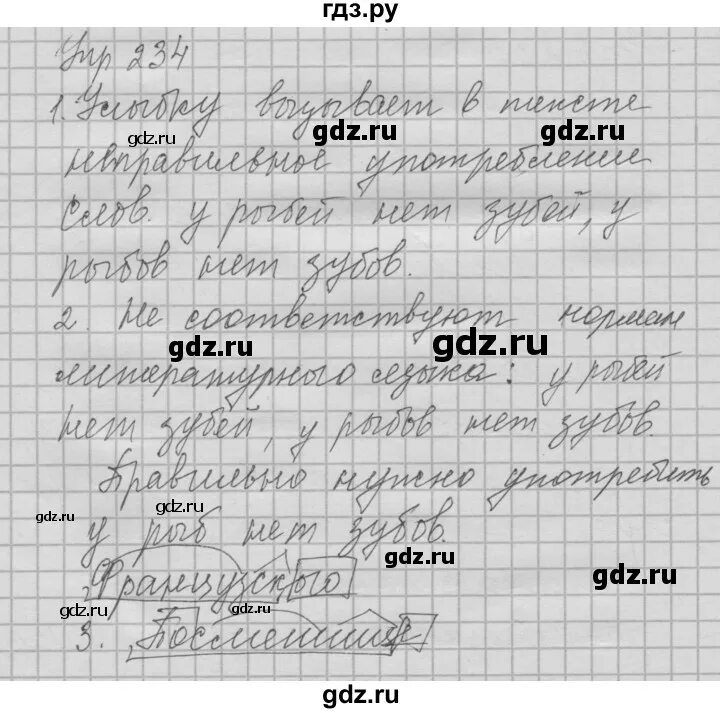 гдз.ру
Упр 234
1. Улыбку вызывает в тексте
gdz.ru gdz.ru gdz.ru
неправильное употребление
слов. у рыбей нет зубей, у
рыбов нет зубов.
2. Не соответствуют нормам
gdz.ru gdz.ru
литературного языка: у рыбей
нет зубей, у рыбов нет зубов.
Правильно нужно употребить
gdz.ru gdz.ru
у рыб нет зубов.
gdz.ru
Французского
gdz.ru gdz.ru gdz.ru
3. Посмеяться
gdz.ru